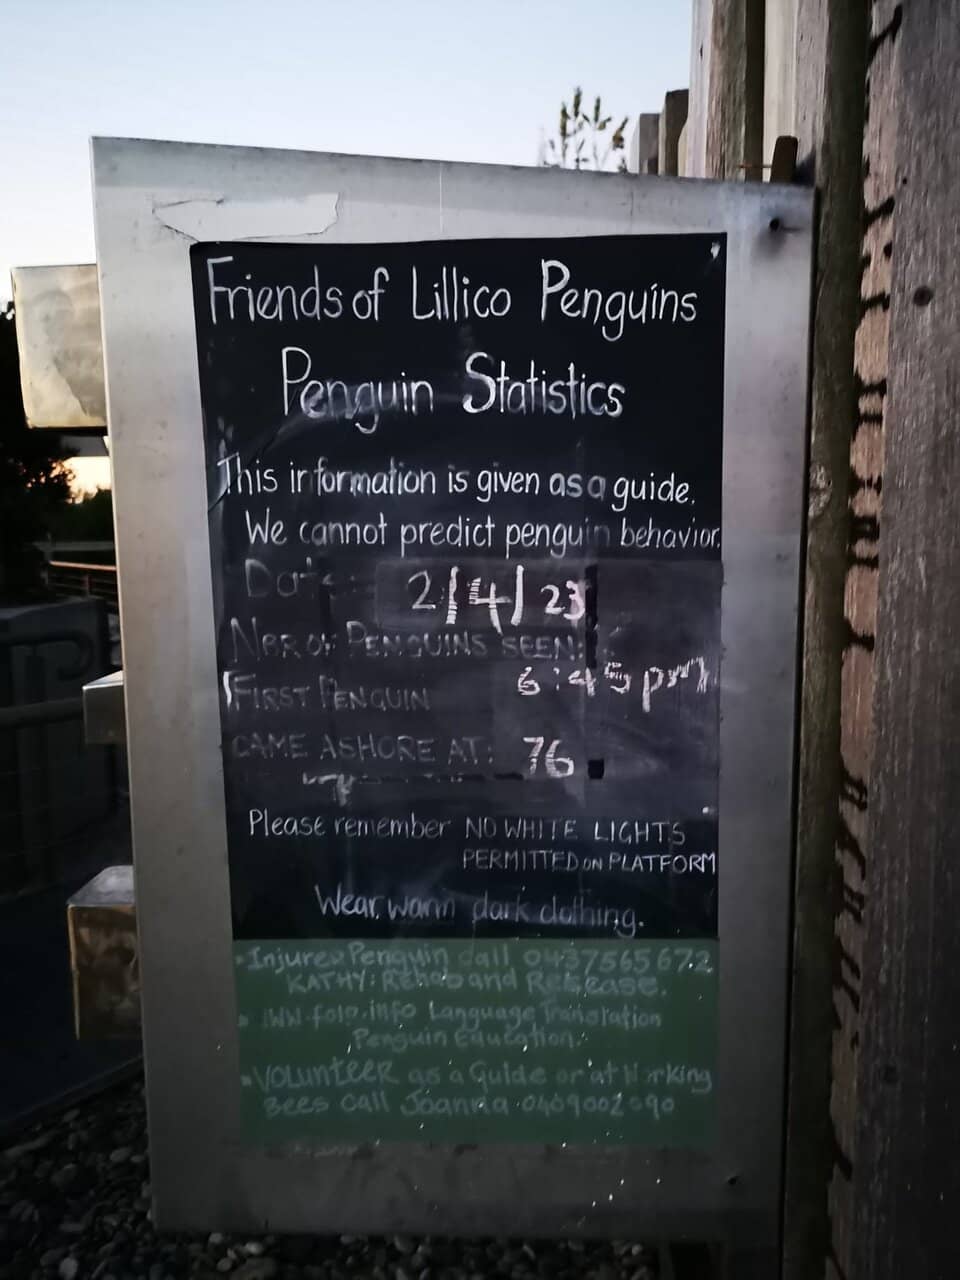 Friends of Lillico Penguins
Penguin Statistics
This information is given as a guide.
We cannot predict penguin behavior.
Date: 2/4/23
NBR OF PENGUINS SEEN:
FIRST PENGUIN 6:45pm
CAME ASHORE AT: 76
Please remember NO WHITE LIGHTS
PERMITTED ON PLATFORM
Wear warm dark clothing.
Injured Penguin call 0437565672
KATHY: Rehab and Release.
folp.info Language Translation
Penguin Education.
VOLUNTEER as a Guide or at Working
Bees call Joanna